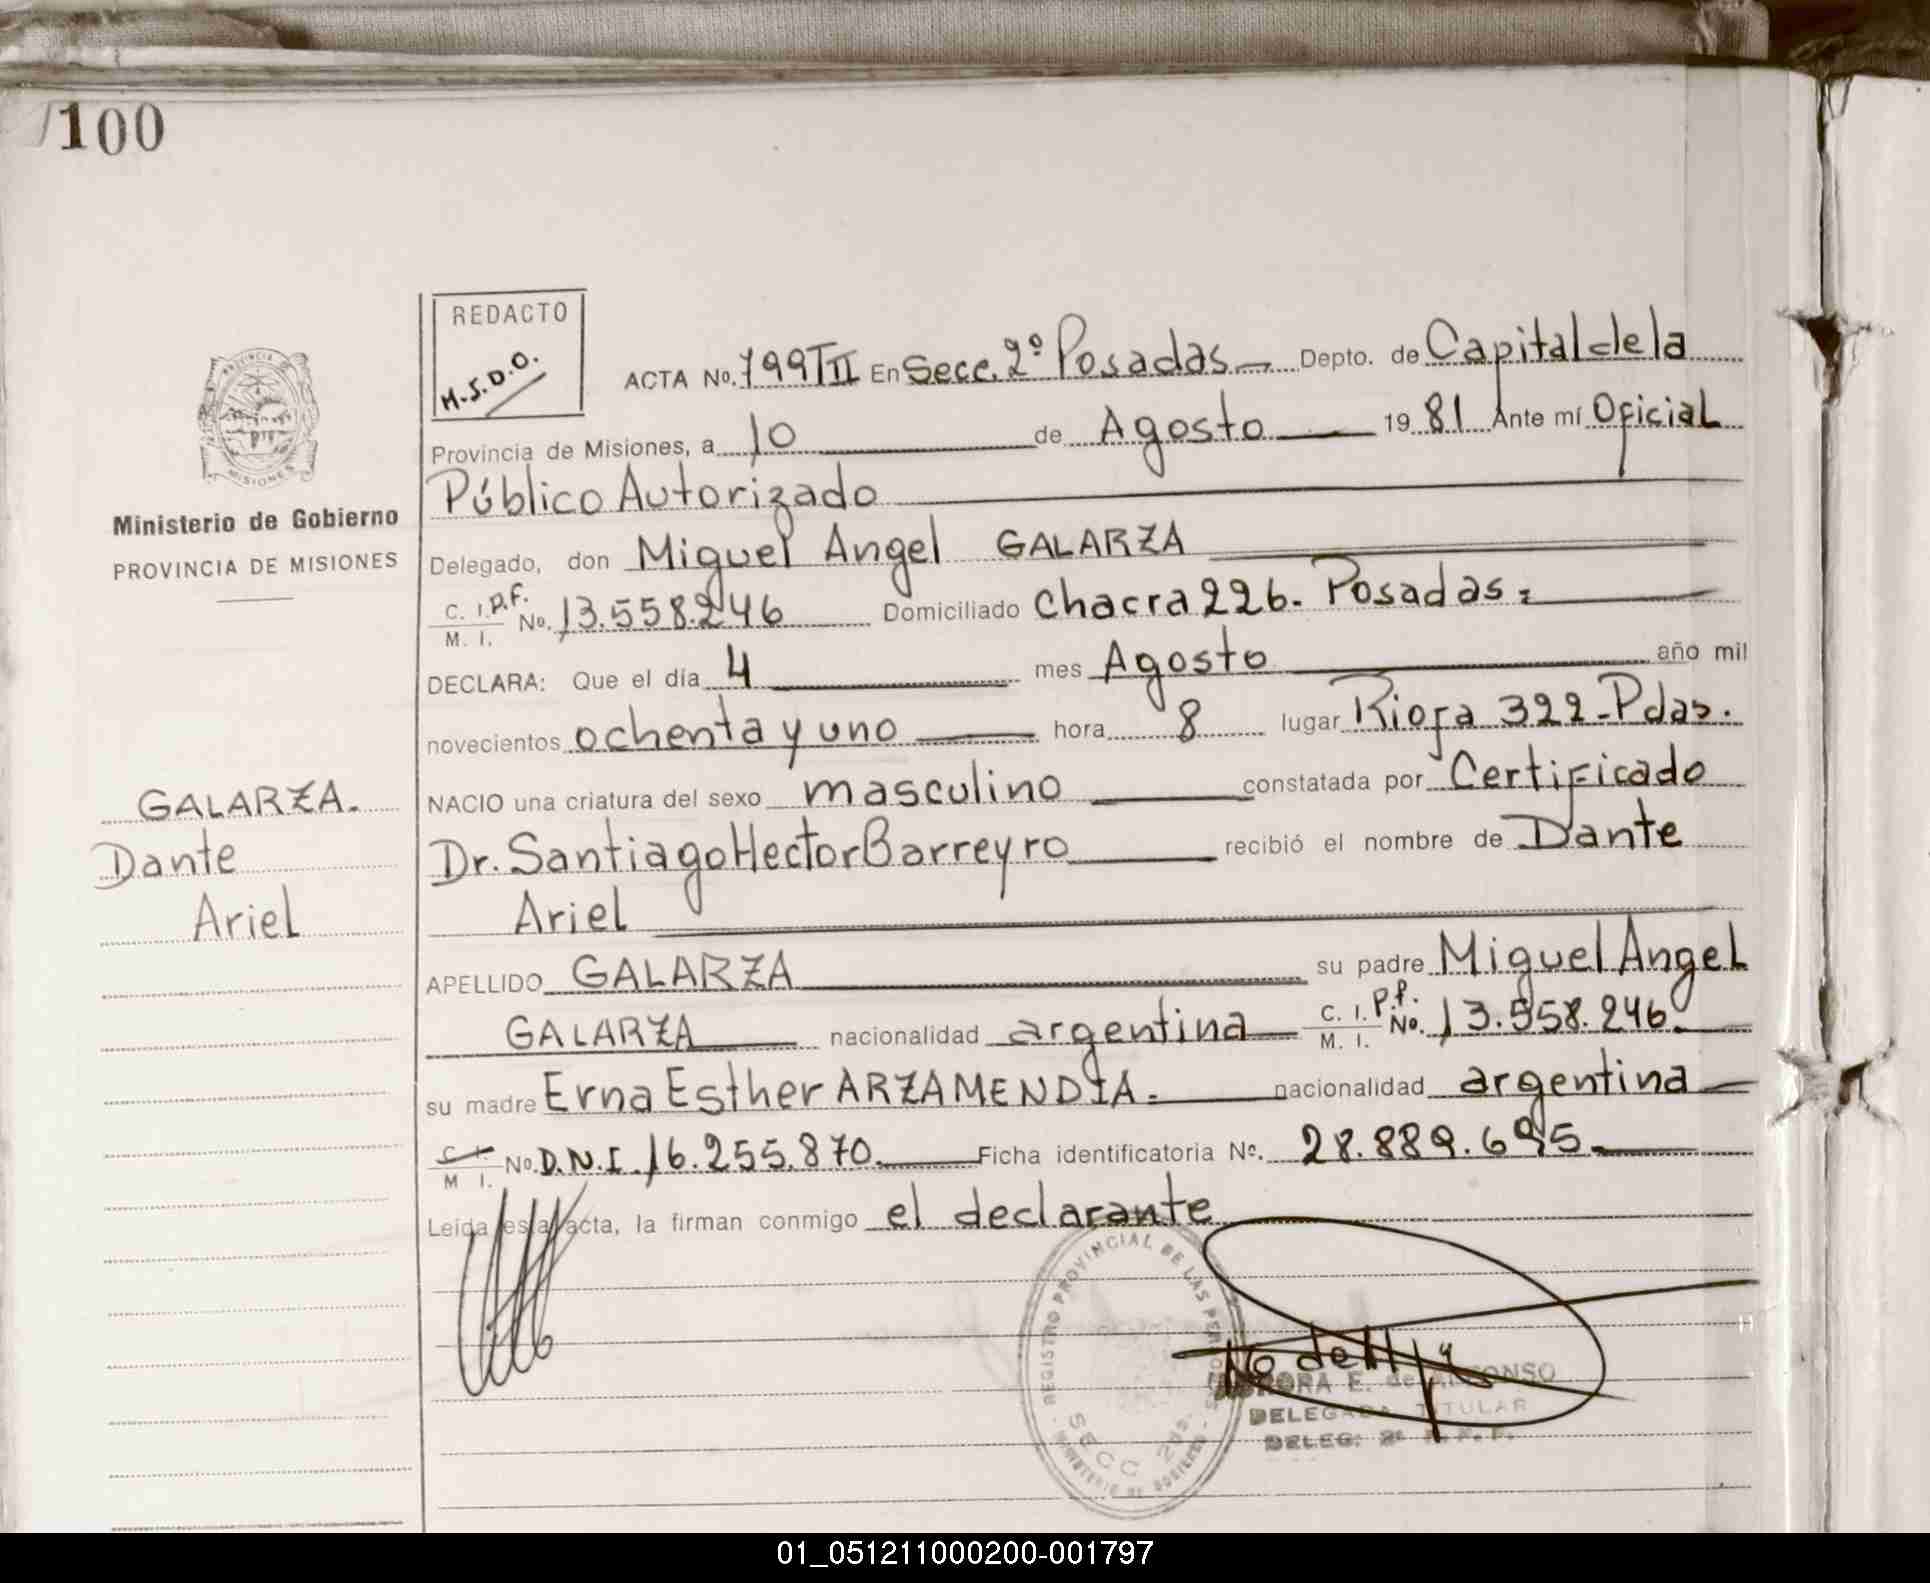 100
REDACTO
M.S.D.O.
ACTA No. 799 TII En Secc. 2º Posadas Depto. de Capital de la
Provincia de Misiones, a 10 de Agosto 1981 Ante mí Oficial
Público Autorizado
PROVINCIA DE
MISIONES
Ministerio de Gobierno
PROVINCIA DE MISIONES
Delegado, don Miguel Angel GALARZA
C. I. P.F. M. I. No. 13.558.246 Domiciliado Chacra 226. Posadas
DECLARA: Que el día 4 mes Agosto año mil
novecientos ochenta y uno hora 8 lugar Rioja 322-Pdas.
GALARZA.
Dante
Ariel
NACIO una criatura del sexo masculino constatada por Certificado
Dr. Santiago Hector Barreyro recibió el nombre de Dante
Ariel
APELLIDO GALARZA su padre Miguel Angel
GALARZA nacionalidad argentina C. I. P.F. M. I. No. 13.558.246
su madre Erna Esther ARZAMENDIA. nacionalidad argentina
C. I. M I. No. D.N.I. 16.255.870 Ficha identificatoria Nº. 28.889.695
Leída esta acta, la firman conmigo el declarante
REGISTRO PROVINCIAL DE LAS PERSONAS
SECC 2da.
MINISTERIO DE GOBIERNO
E. de
DELEGADA TITULAR
DELEG. 2ª
01_051211000200-001797